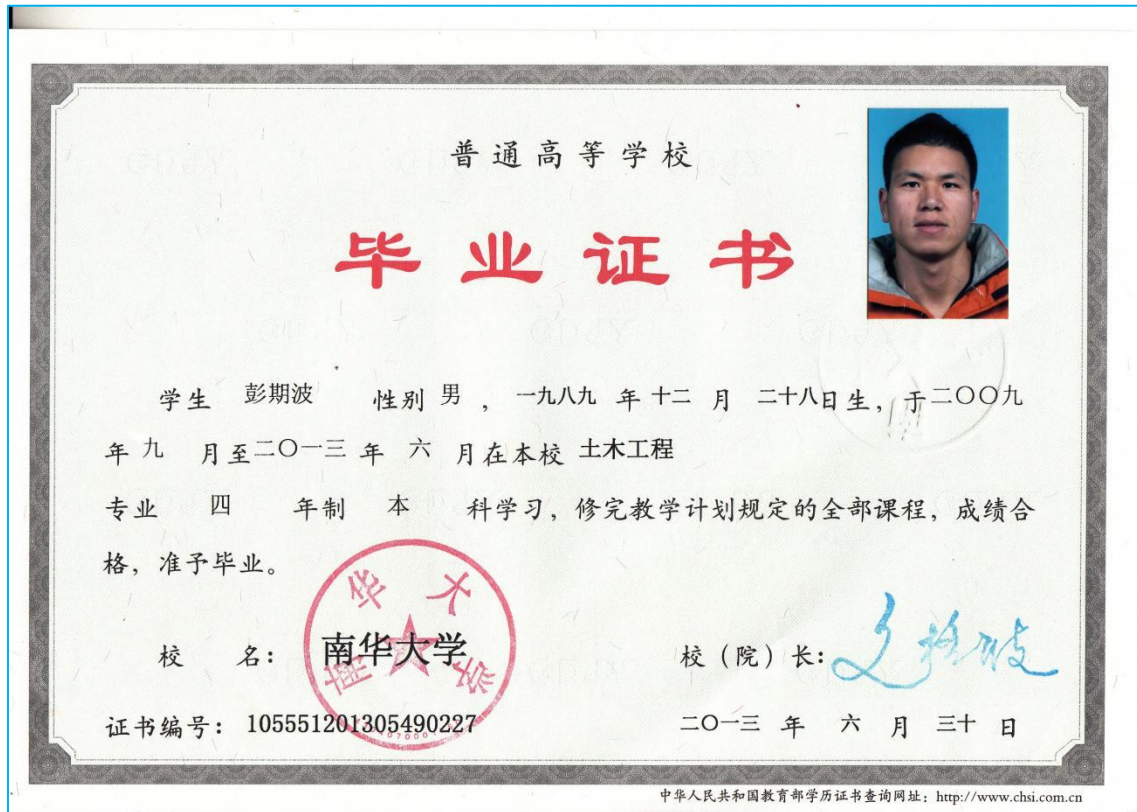 普通高等学校
毕业证书
学生 彭期波 性别 男 , 一九八九 年 十二 月 二十八日生, 于二〇〇九
年 九 月至二〇一三 年 六 月在本校 土木工程
专业 四 年制 本 科学习, 修完教学计划规定的全部课程, 成绩合
格, 准予毕业。
校 名: 南华大学 校(院)长:
南华大学
证书编号: 105551201305490227 二〇一三 年 六 月 三十 日
中华人民共和国教育部学历证书查询网址: http://www.chsi.com.cn